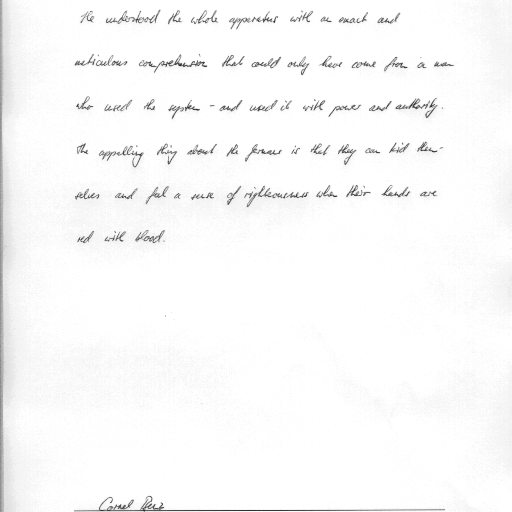 He understood the whole apparatus with an exact and
meticulous comprehension that could only have come from a man
who used the system - and used it with power and authority.
The appalling thing about the Germans is that they can kid them-
selves and feel a sense of righteousness when their hands are
red with blood.
Cornel